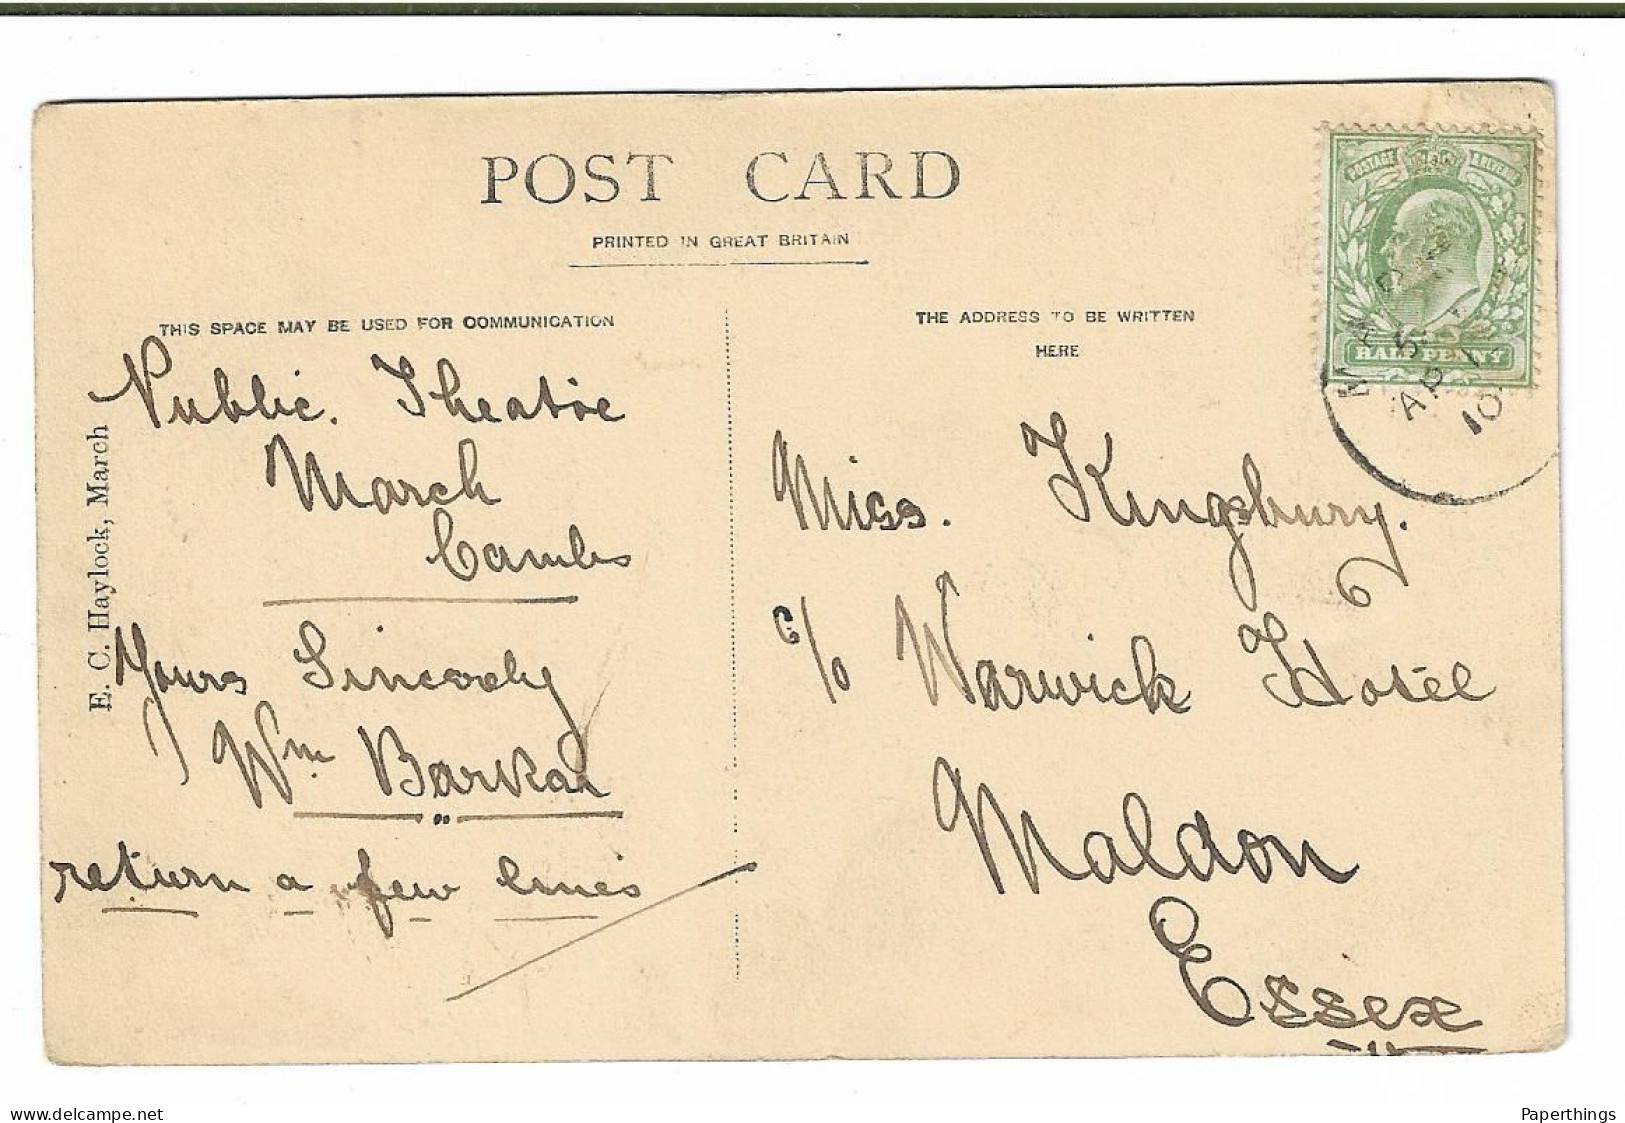 POST CARD
PRINTED IN GREAT BRITAIN
THIS SPACE MAY BE USED FOR COMMUNICATION
THE ADDRESS TO BE WRITTEN
HERE
E. C. Haylock, March
Public. Theatre
March
Cambs
Yours Sincerely
Wm Barker
return a few lines
Miss. Kingsbury.
c/o Warwick Hotel
Maldon
Essex
POSTAGE & REVENUE
HALFPENNY
AP
10
www.delcampe.net
Paperthings